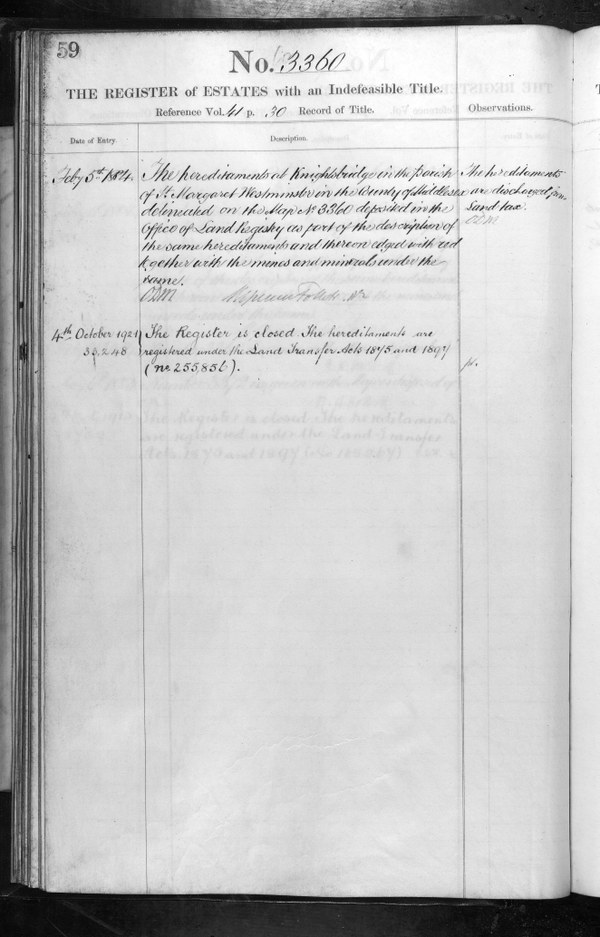 59
No. 3360
THE REGISTER of ESTATES with an Indefeasible Title.
Reference Vol. 41 p. 30 Record of Title.
Observations.
Date of Entry.
Description.
Feby 5th
The hereditaments at Knightsbridge in the Parish
of St. Margaret Westminster in the County of Middlesex
delineated on the Map No 3360 deposited in the
Office of Land Registry as part of the description of
the same hereditaments and thereon edged with red
together with the mines and minerals under the
same.
The hereditaments
are discharged from
Land tax.
4th October 1921
The Register is closed The hereditaments are
registered under the Land Transfer Acts 1875 and 1897
(no 255,856).